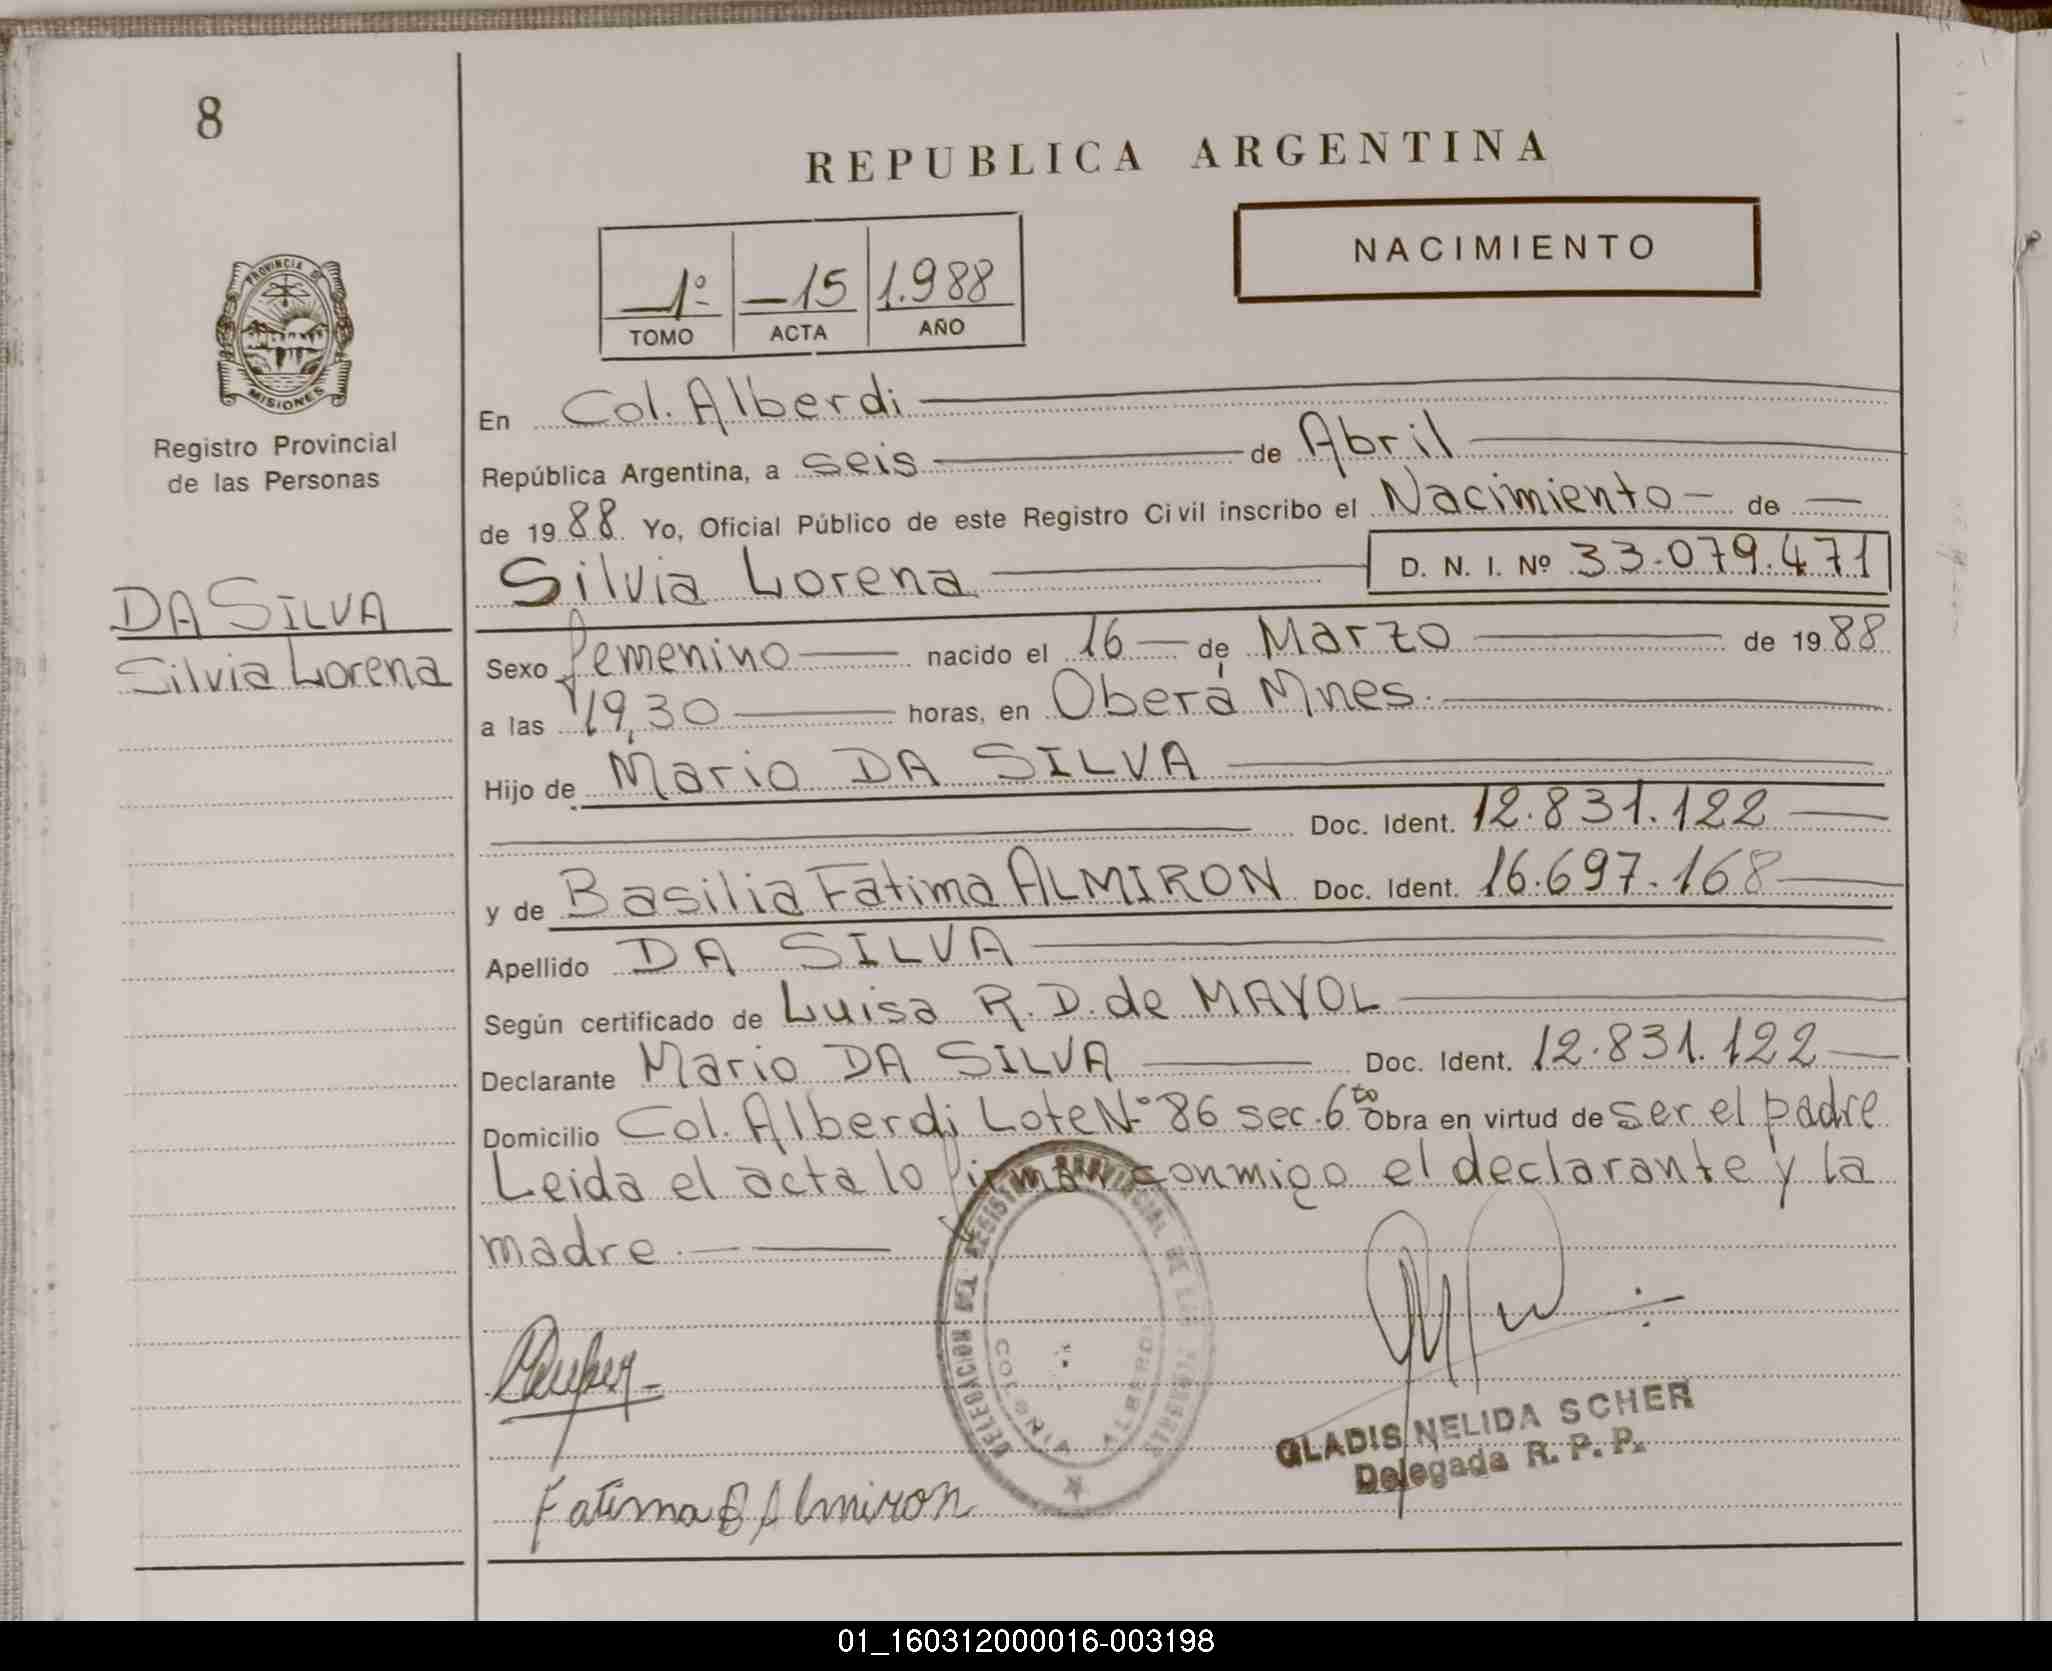 8
REPUBLICA ARGENTINA
NACIMIENTO
1º 15 1.988
TOMO ACTA AÑO
PROVINCIA DE
MISIONES
Registro Provincial
de las Personas
DA SILVA
Silvia Lorena
En Col. Alberdi
República Argentina, a seis de Abril
de 1988 Yo, Oficial Público de este Registro Civil inscribo el Nacimiento de
Silvia Lorena D. N. I. Nº 33.079.471
Sexo femenino nacido el 16 de Marzo de 1988
a las 19,30 horas, en Oberá Mnes.
Hijo de Mario DA SILVA
Doc. Ident. 12.831.122
y de Basilia Fatima ALMIRON Doc. Ident. 16.697.168
Apellido DA SILVA
Según certificado de Luisa R. D. de MAYOL
Declarante Mario DA SILVA Doc. Ident. 12.831.122
Domicilio Col. Alberdi Lote Nº 86 sec. 6to Obra en virtud de ser el padre
Leida el acta lo firman conmigo el declarante y la
madre.
REGISTRO PROVINCIAL DE LAS PERSONAS
DELEGACION
COLONIA ALBERDI
GLADIS NELIDA SCHER
Delegada R. P. P.
Fatima B Almiron
01_160312000016-003198